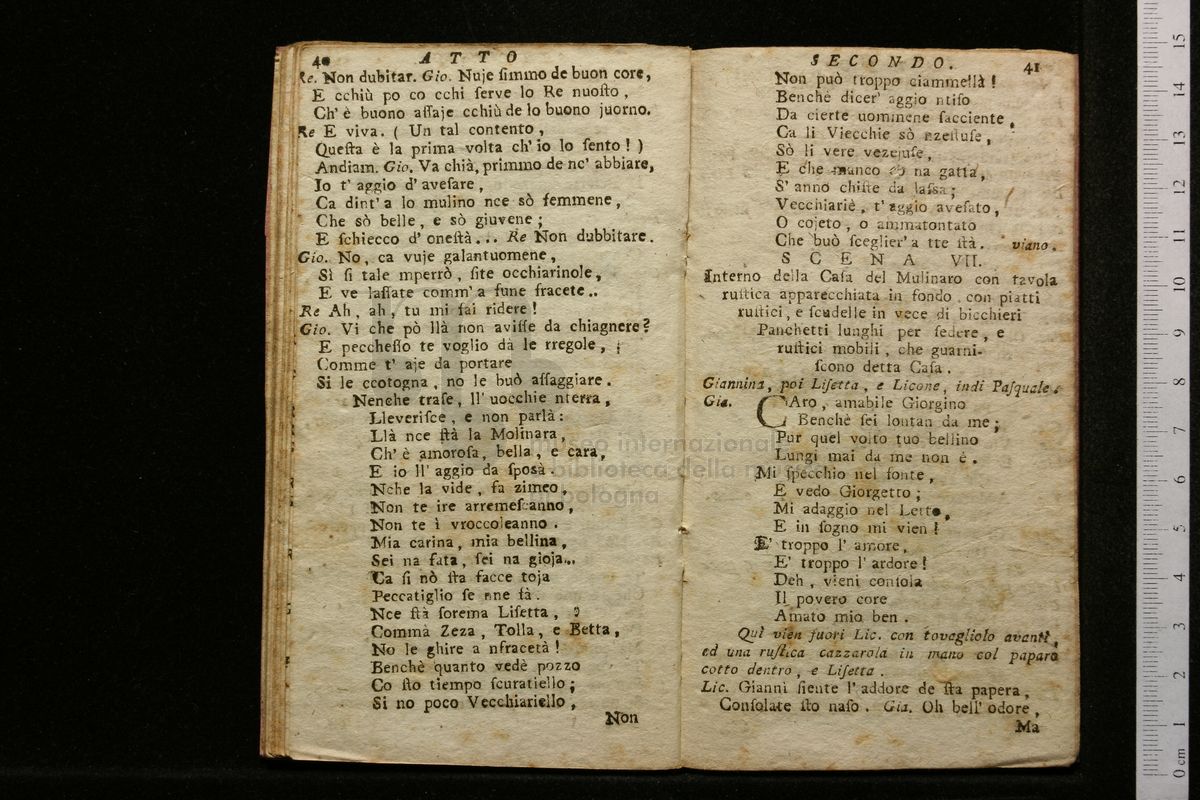 40 ATTO
Re. Non dubitar. Gio. Nuje ſimmo de buon core,
E cchiù po co cchi ſerve lo Re nuoſto,
Ch' è buono aſſaje cchiù de lo buono juorno.
Re E viva. ( Un tal contento,
Queſta è la prima volta ch' io lo ſento! )
Andiam. Gio. Va chià, primmo de nc' abbiare,
Io t' aggio d' aveſare,
Ca dint' a lo mulino nce sò femmene,
Che sò belle, e sò giuvene;
E ſchiecco d' oneſtà... Re Non dubbitare.
Gio. No, ca vuje galantuomene,
Sì ſi tale mperrò, ſite occhiarinole,
E ve laſſate comm' a fune fracete..
Re Ah, ah, tu mi fai ridere!
Gio. Vi che pò llà non aviſſe da chiagnere?
E peccheſſo te voglio dà le rregole,
Comme t' aje da portare
Si le ccotogna, no le buò aſſaggiare.
Nenche traſe, ll' uocchie nterra,
Lleveriſce, e non parlà:
Llà nce ſtà la Molinara,
Ch' è amoroſa, bella, e cara,
E io ll' aggio da ſposà.
Nche la vide, fa zimeo,
Non te ire arremeſcanno,
Non te ì vroccoleanno.
Mia carina, mia bellina,
Sei na fata, ſei na gioja...
Ca ſi nò ſta facce toja
Peccatiglio ſe nne fà.
Nce ſtà ſorema Liſetta,
Commà Zeza, Tolla, e Betta,
No le ghire a nfracetà!
Benchè quanto vedè pozzo
Co ſto tiempo ſcuratiello;
Si no poco Vecchiariello,
Non
SECONDO. 41
Non può troppo ciammellà!
Benchè dicer' aggio ntiſo
Da cierte uommene ſacciente,
Ca li Viecchie sò nzelluſe,
Sò li vere vezejuſe,
E che manco na gatta,
S' anno chiſte da laſſa;
Vecchiariè, t' aggio aveſato,
O cojeto, o ammatontato
Che buò ſceglier' a tte ſtà. viano.
SCENA VII.
Interno della Caſa del Mulinaro con tavola
ruſtica apparecchiata in fondo con piatti
ruſtici, e ſcudelle in vece di bicchieri
Panchetti lunghi per ſedere, e
ruſtici mobili, che guarni-
ſcono detta Caſa.
Giannina, poi Liſetta, e Licone, indi Paſquale.
Gia. CAro, amabile Giorgino
Benchè ſei lontan da me;
Pur quel volto tuo bellino
Lungi mai da me non è.
Mi ſpecchio nel fonte,
E vedo Giorgetto;
Mi adaggio nel Letto,
E in ſogno mi vien!
E' troppo l' amore,
E' troppo l' ardore!
Deh, vieni conſola
Il povero core
Amato mio ben.
Quì vien fuori Lic. con tovagliolo avanti,
ed una ruſtica cazzarola in mano col paparo
cotto dentro, e Liſetta.
Lic. Gianni ſiente l' addore de ſta papera,
Conſolate ſto naſo. Gia. Oh bell' odore,
Ma
museo internazionale
biblioteca della musica
bologna
0 cm 1 2 3 4 5 6 7 8 9 10 11 12 13 14 15